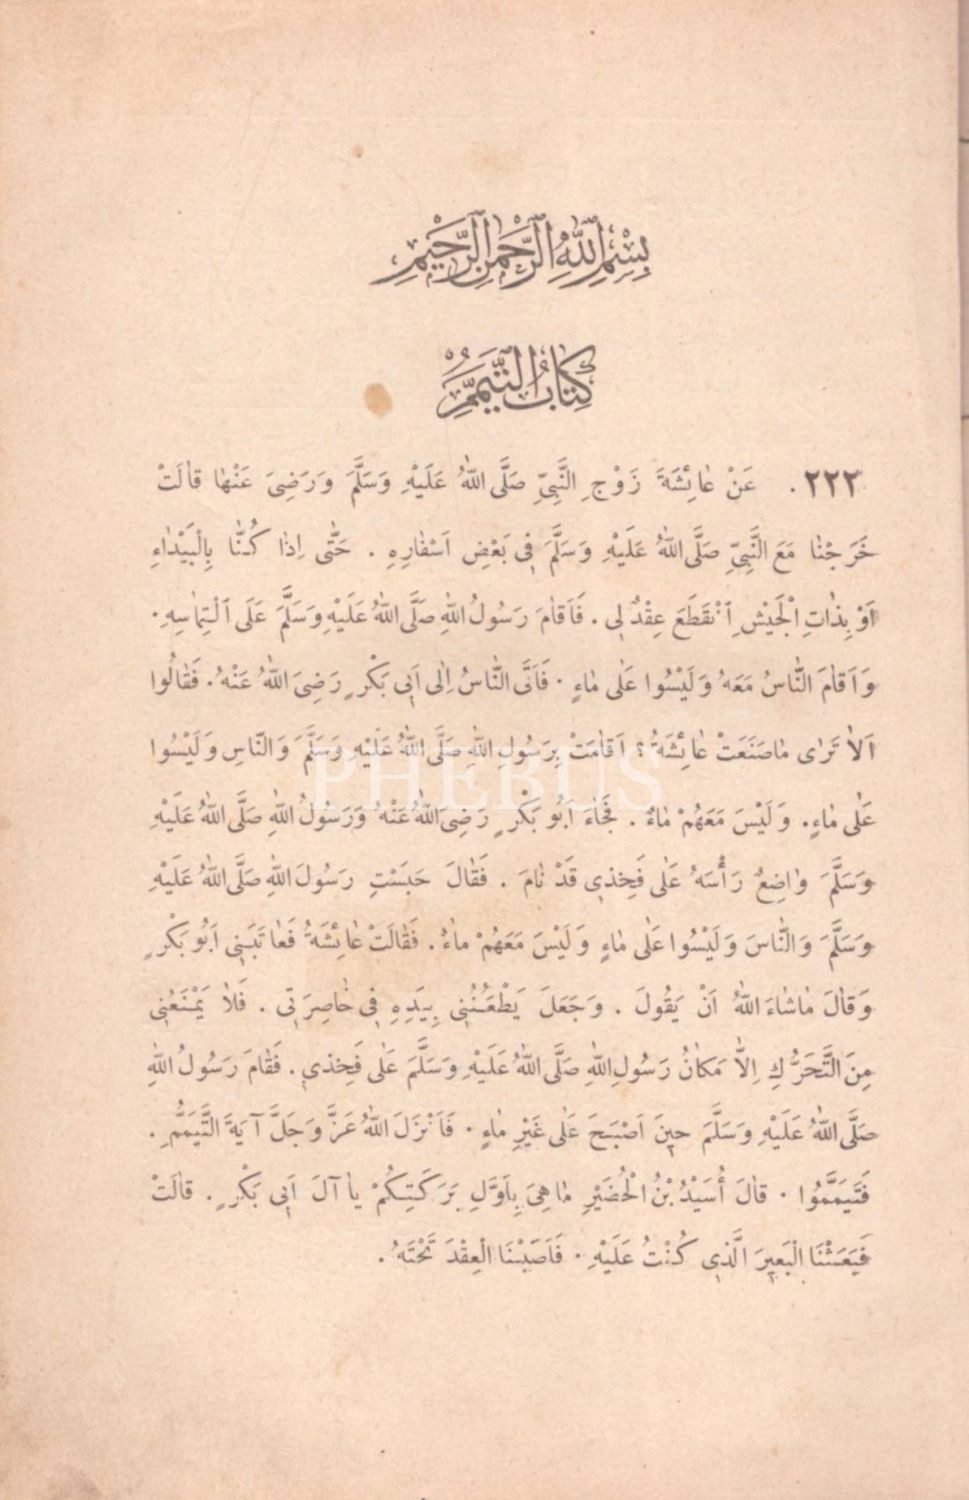 بِسْمِ اللّٰهِ الرَّحْمٰنِ الرَّحِيمِ
كِتَابُ التَّيَمُّمِ
٢٢٢. عَنْ عٰائِشَةَ زَوْجِ النَّبِيِّ صَلَّى اللّٰهُ عَلَيْهِ وَسَلَّمَ وَرَضِىَ عَنْهٰا قٰالَتْ
خَرَجْنٰا مَعَ النَّبِيِّ صَلَّى اللّٰهُ عَلَيْهِ وَسَلَّمَ فِى بَعْضِ اَسْفٰارِهِ . حَتّٰى اِذٰا كُنّٰا بِالْبَيْدٰاءِ
اَوْ بِذٰاتِ الْجَيْشِ اِنْقَطَعَ عِقْدٌ لِى . فَاَقٰامَ رَسُولُ اللّٰهِ صَلَّى اللّٰهُ عَلَيْهِ وَسَلَّمَ عَلَى الْتِمٰاسِهِ .
وَاَقٰامَ النّٰاسُ مَعَهُ وَلَيْسُوا عَلٰى مٰاءٍ . فَاَتَى النّٰاسُ اِلٰى اَبِى بَكْرٍ رَضِىَ اللّٰهُ عَنْهُ . فَقٰالُوا
اَلاٰ تَرٰى مٰاصَنَعَتْ عٰائِشَةُ ؛ اَقٰامَتْ بِرَسُولِ اللّٰهِ صَلَّى اللّٰهُ عَلَيْهِ وَسَلَّمَ وَالنّٰاسِ وَلَيْسُوا
PHEBUS
عَلٰى مٰاءٍ . وَلَيْسَ مَعَهُمْ مٰاءٌ . فَجٰاءَ اَبُو بَكْرٍ رَضِىَ اللّٰهُ عَنْهُ وَرَسُولُ اللّٰهِ صَلَّى اللّٰهُ عَلَيْهِ
وَسَلَّمَ وٰاضِعٌ رَأْسَهُ عَلٰى فَخِذِى قَدْ نٰامَ . فَقٰالَ حَبَسْتِ رَسُولَ اللّٰهِ صَلَّى اللّٰهُ عَلَيْهِ
وَسَلَّمَ وَالنّٰاسَ وَلَيْسُوا عَلٰى مٰاءٍ وَلَيْسَ مَعَهُمْ مٰاءٌ . فَقٰالَتْ عٰائِشَةُ فَعٰاتَبَنِى اَبُو بَكْرٍ
وَقٰالَ مٰاشٰاءَ اللّٰهُ اَنْ يَقُولَ . وَجَعَلَ يَطْعُنُنِى بِيَدِهِ فِى خٰاصِرَتِى . فَلاٰ يَمْنَعُنِى
مِنَ التَّحَرُّكِ اِلاّٰ مَكٰانُ رَسُولِ اللّٰهِ صَلَّى اللّٰهُ عَلَيْهِ وَسَلَّمَ عَلٰى فَخِذِى . فَقٰامَ رَسُولُ اللّٰهِ
صَلَّى اللّٰهُ عَلَيْهِ وَسَلَّمَ حِينَ اَصْبَحَ عَلٰى غَيْرِ مٰاءٍ . فَاَنْزَلَ اللّٰهُ عَزَّ وَجَلَّ آيَةَ التَّيَمُّمِ .
فَتَيَمَّمُوا . قٰالَ أُسَيْدُ بْنُ الْحُضَيْرِ مٰا هِىَ بِاَوَّلِ بَرَكَتِكُمْ يٰا آلَ اَبِى بَكْرٍ . قٰالَتْ
فَبَعَثْنَا الْبَعِيرَ الَّذِى كُنْتُ عَلَيْهِ . فَاَصَبْنَا الْعِقْدَ تَحْتَهُ .